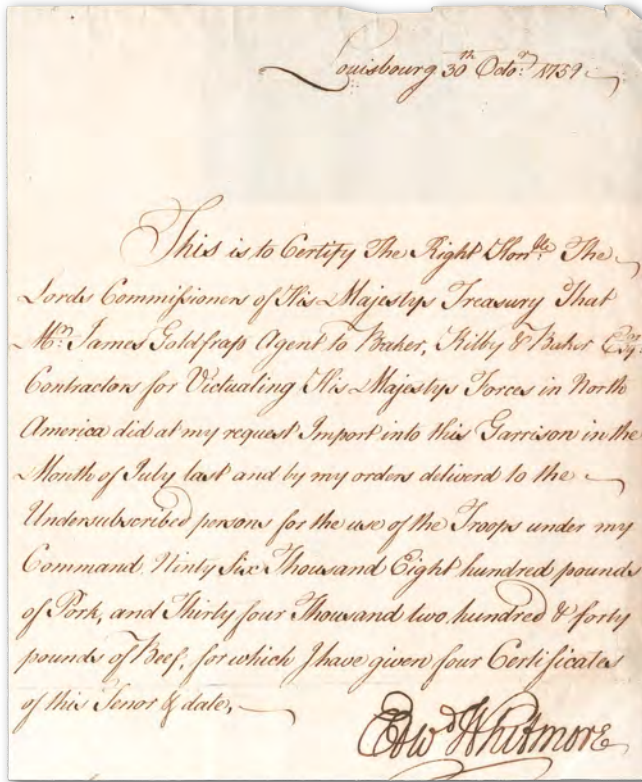 Louisbourg 30th Octo:r 1759
This is to Certify The Right Hon:ble The
Lords Commissioners of His Majestys Treasury That
Mr. James Goldfrap Agent to Baker, Kilby & Baker Esqrs
Contractors for Victualing His Majestys Forces in North
America did at my request Import into this Garrison in the
Month of July last and by my orders deliverd to the
Undersubscribed persons for the use of the Troops under my
Command Ninty Six Thousand Eight hundred pounds
of Pork, and Thirty four Thousand two hundred & forty
pounds of Beef, for which I have given four Certificates
of this Tenor & date,
Edwd Whitmore